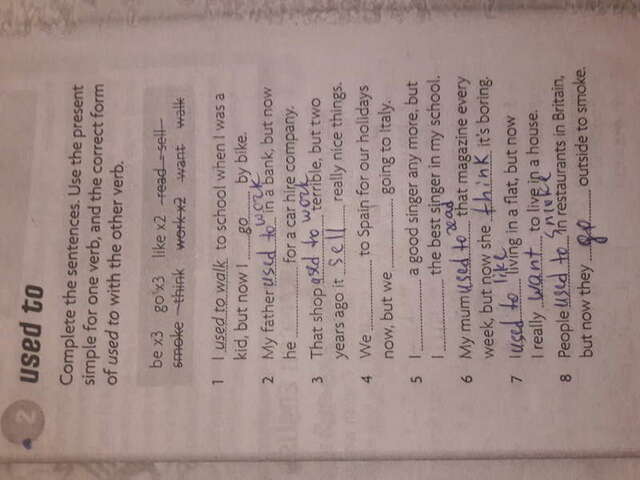 2 used to
Complete the sentences. Use the present
simple for one verb, and the correct form
of used to with the other verb.
be x3 go x3 like x2 read sell
smoke think work x2 want walk
1 I used to walk to school when I was a
kid, but now I go by bike.
2 My father used to work in a bank, but now
he ........ for a car hire company.
3 That shop used to work terrible, but two
years ago it sell really nice things.
4 We ........ to Spain for our holidays
now, but we ........ going to Italy.
5 I ........ a good singer any more, but
I ........ the best singer in my school.
6 My mum used to read that magazine every
week, but now she think it's boring.
7 I used to like living in a flat, but now
I really want to live in a house.
8 People used to smoke in restaurants in Britain,
but now they go outside to smoke.